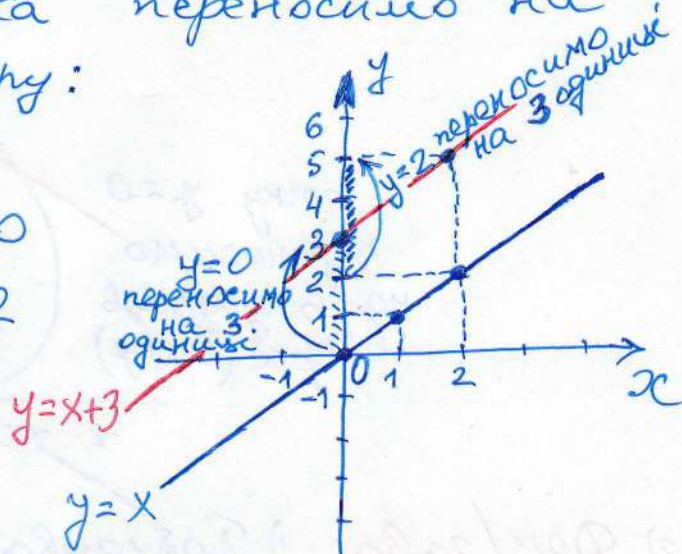 ка переносимо на
ру:
0
2
y
6
5
4
3
2
1
-1
y=2 переносимо
на 3 одиниці
y=0
переносимо
на 3
одиниці
-1
0
1
2
x
y=x+3
y=x